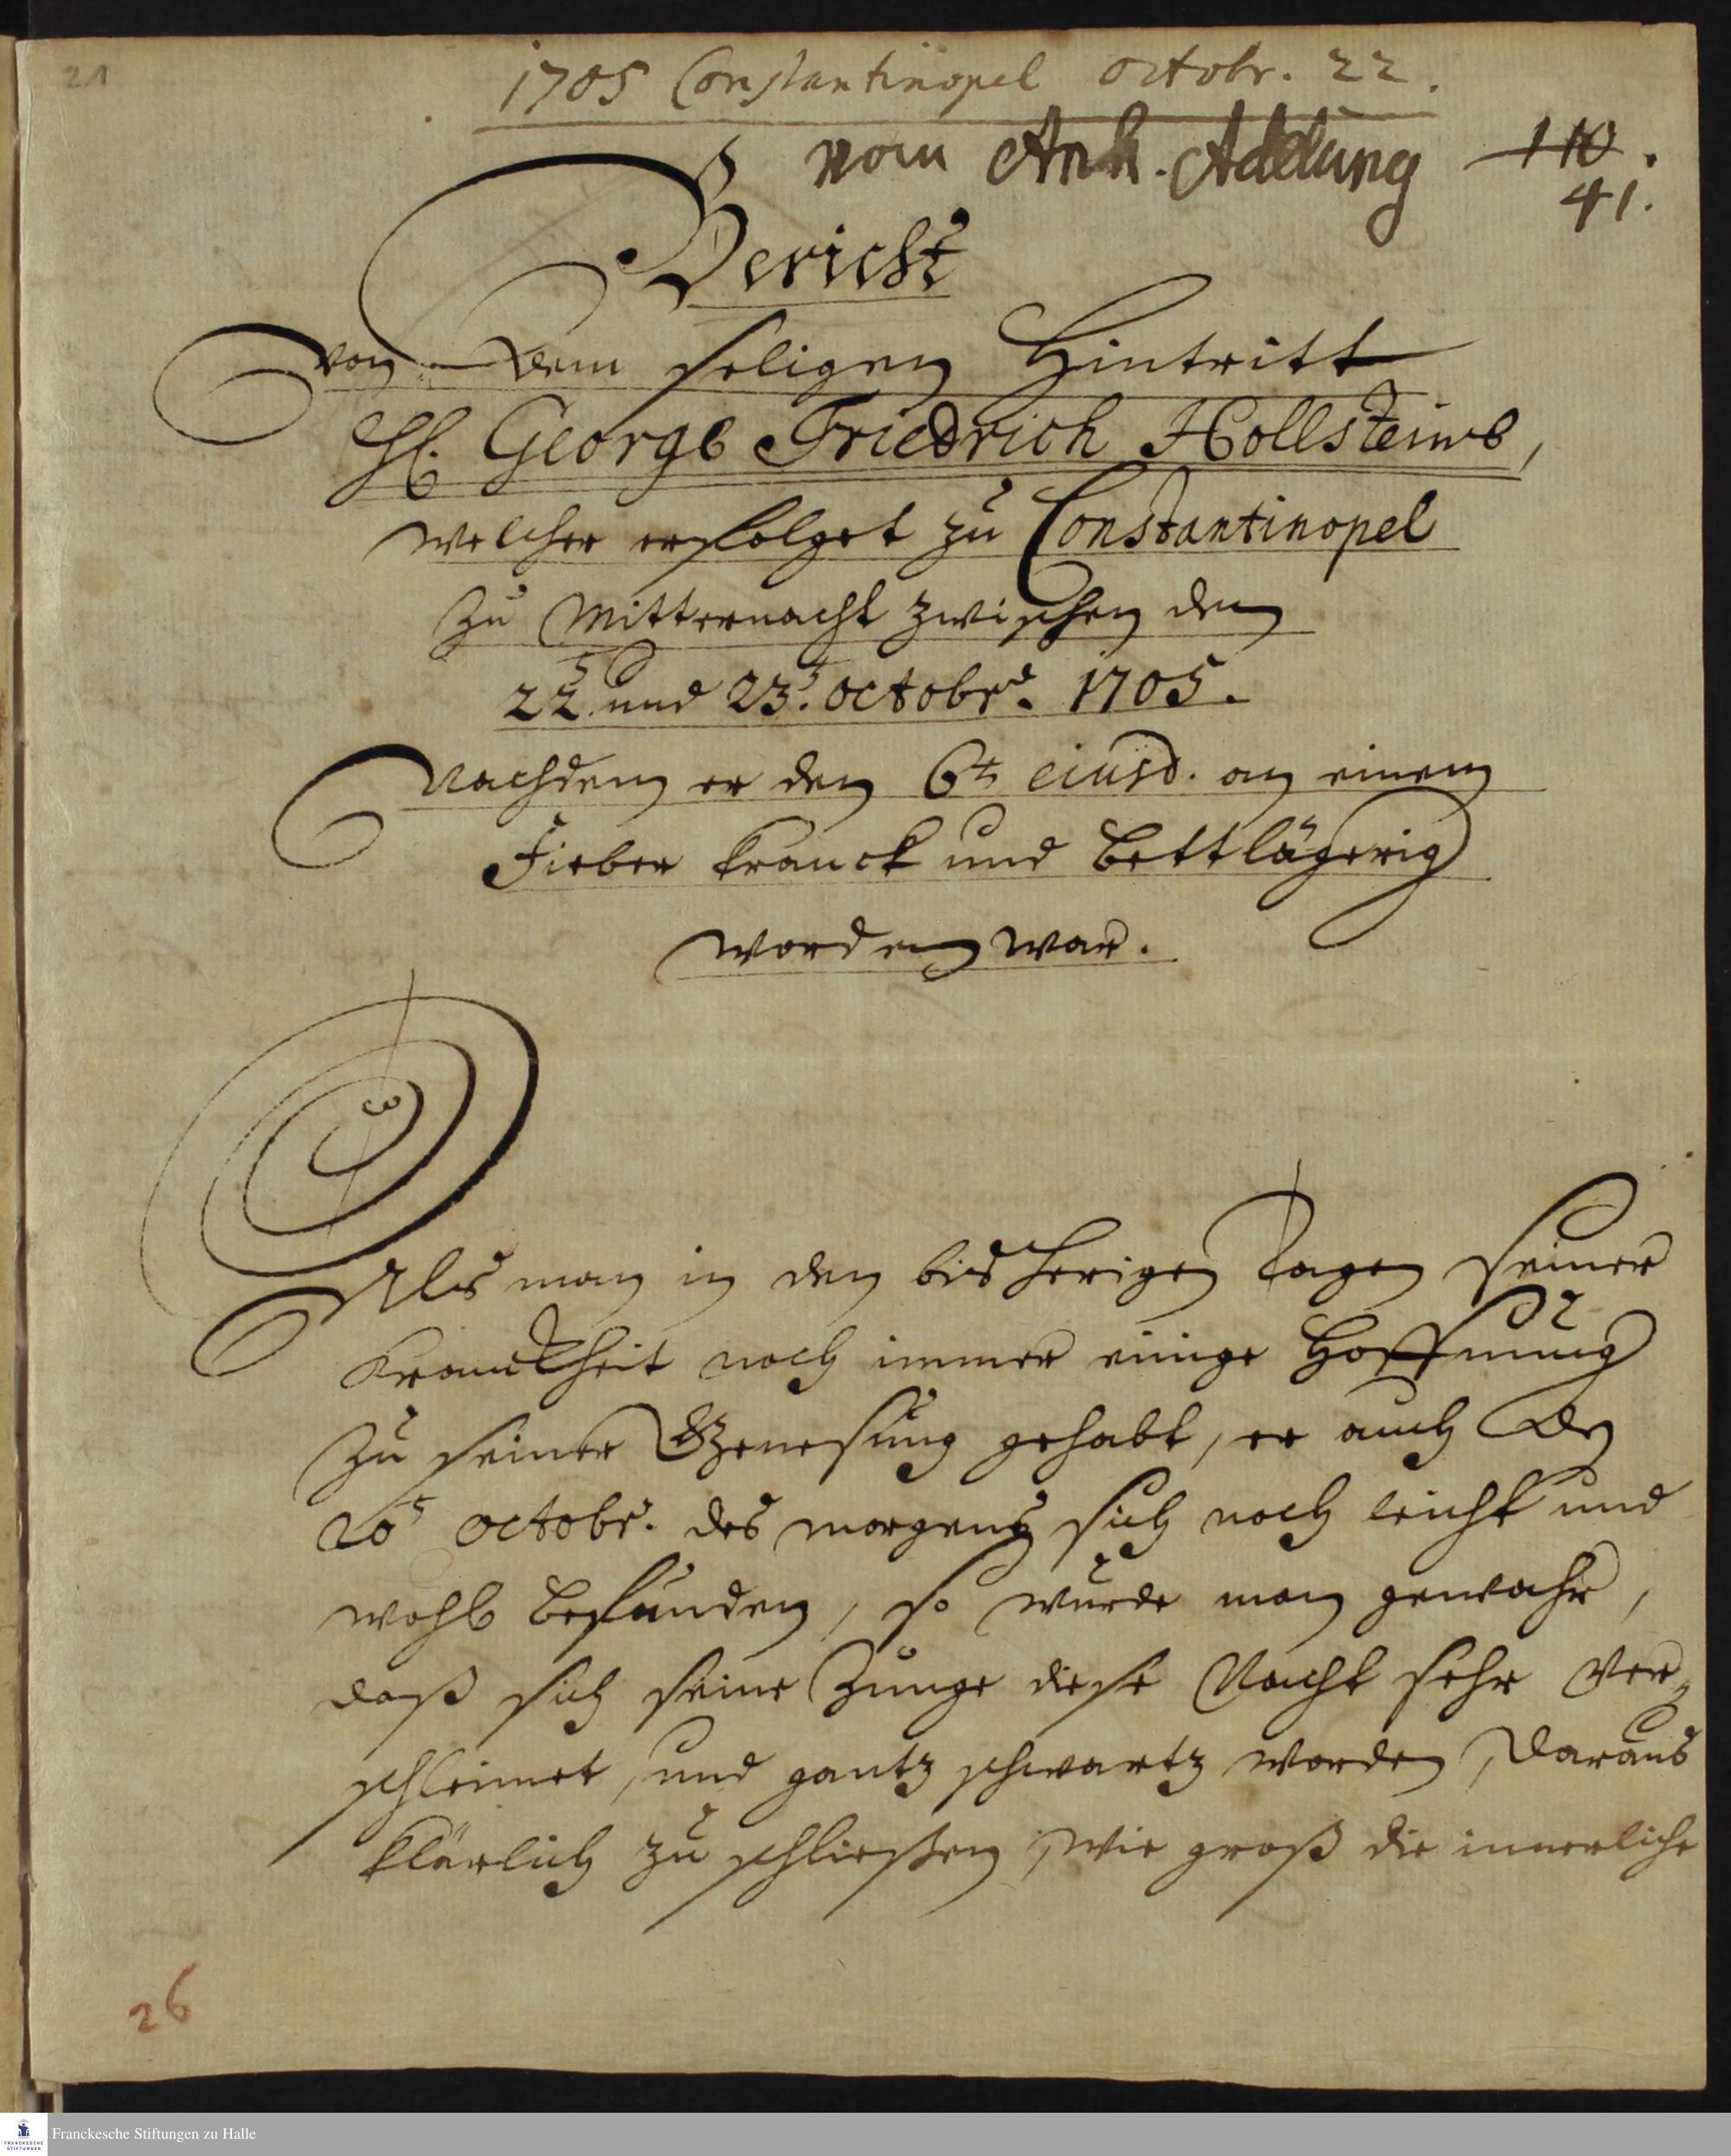 21
1705 Constantinopel Octobr. 22.
vom Anh. Adelung
110.
41.
Bericht
von dem seligen Hintritt
H. George Friedrich Hollsteins,
welcher erfolget zu Constantinopel
zu Mitternacht zwischen dem
22t. und 23t. Octobr. 1705.
Nachdem er den 6t eiusd. an einem
Fieber kranck und bettlägerig
worden war.
Als man in den bisherigen Tagen seiner
Kranckheit noch immer einige Hoffnung
zu seiner Genesung gehabt, er auch den
20t Octobr. des morgens sich noch leicht und
wohl befunden, so wurde man gewahr,
daß sich seine Zunge diese Nacht sehr ver-
schleimet, und gantz schwartz worden, daraus
klärlich zu schließen, wie groß die innerliche
26
Franckesche Stiftungen zu Halle
FRANCKESCHE
STIFTUNGEN